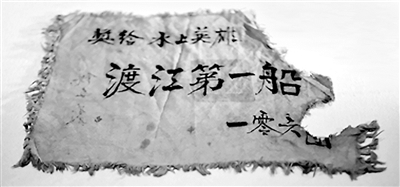 奖给 水上英雄
渡江第一船
一零六